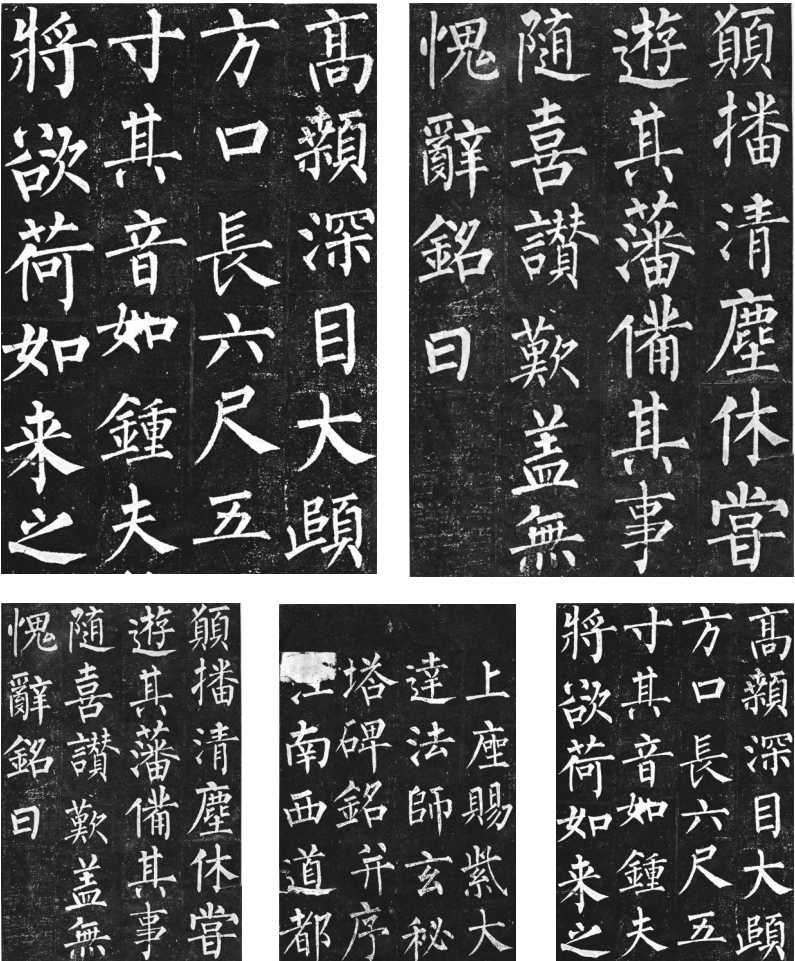 髙顙深目大頤
方口長六尺五
寸其音如鍾夫
將欲荷如来之
顛播清塵休甞
遊其藩備其事
隨喜讃歎盖無
愧辭銘曰
顛播清塵休甞
遊其藩備其事
隨喜讃歎盖無
愧辭銘曰
上座賜紫大
達法師玄秘
塔碑銘并序
江南西道都
髙顙深目大頤
方口長六尺五
寸其音如鍾夫
將欲荷如来之